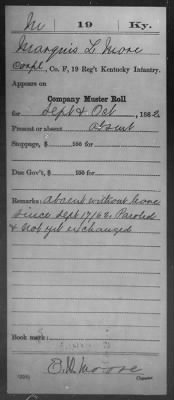 M | 19 | Ky.
Marquis L Moore
Corpl., Co. F, 19 Reg't Kentucky Infantry.
Appears on
Company Muster Roll
for Sept & Oct, 1862
Present or absent Absent
Stoppage, $ 100 for
Due Gov't, $ 100 for
Remarks: Absent without leave
since Sept 17/62. Paroled
& not yet exchanged
Book mark:
O. D. Moore
(358) Copyist.